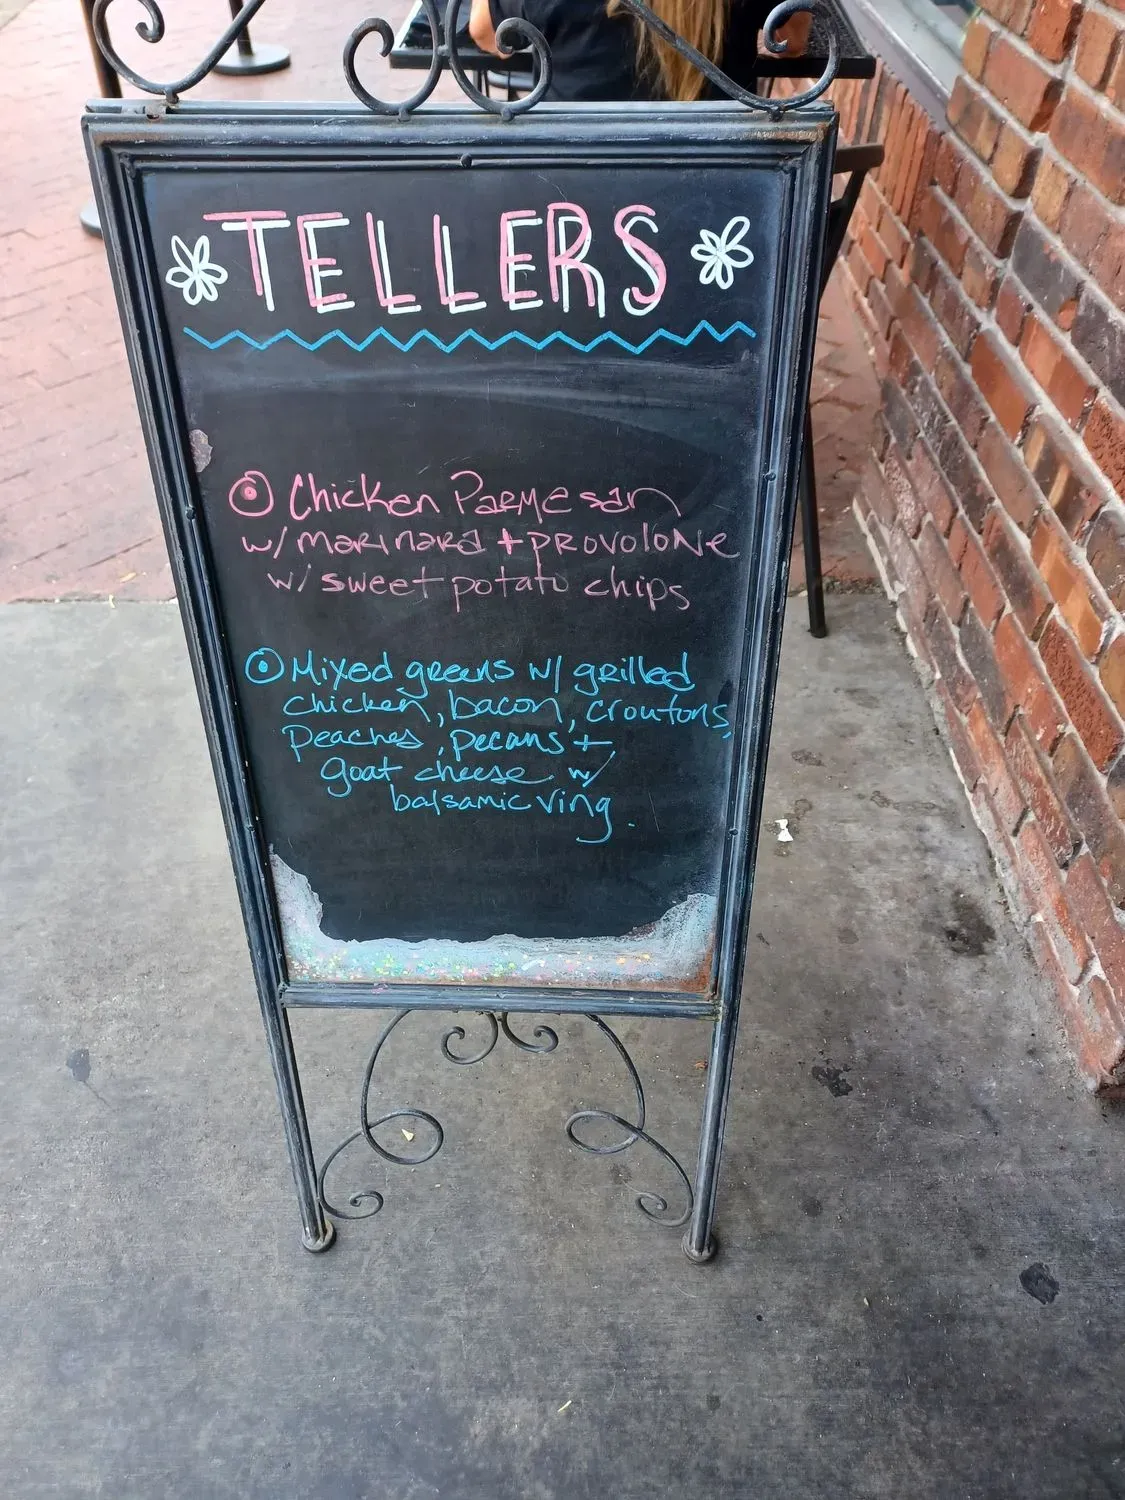 TELLERS
Chicken Parmesan
w/ marinara + provolone
w/ sweet potato chips
Mixed greens w/ grilled
chicken, bacon, croutons,
peaches, pecans +
goat cheese w/
balsamic ving.